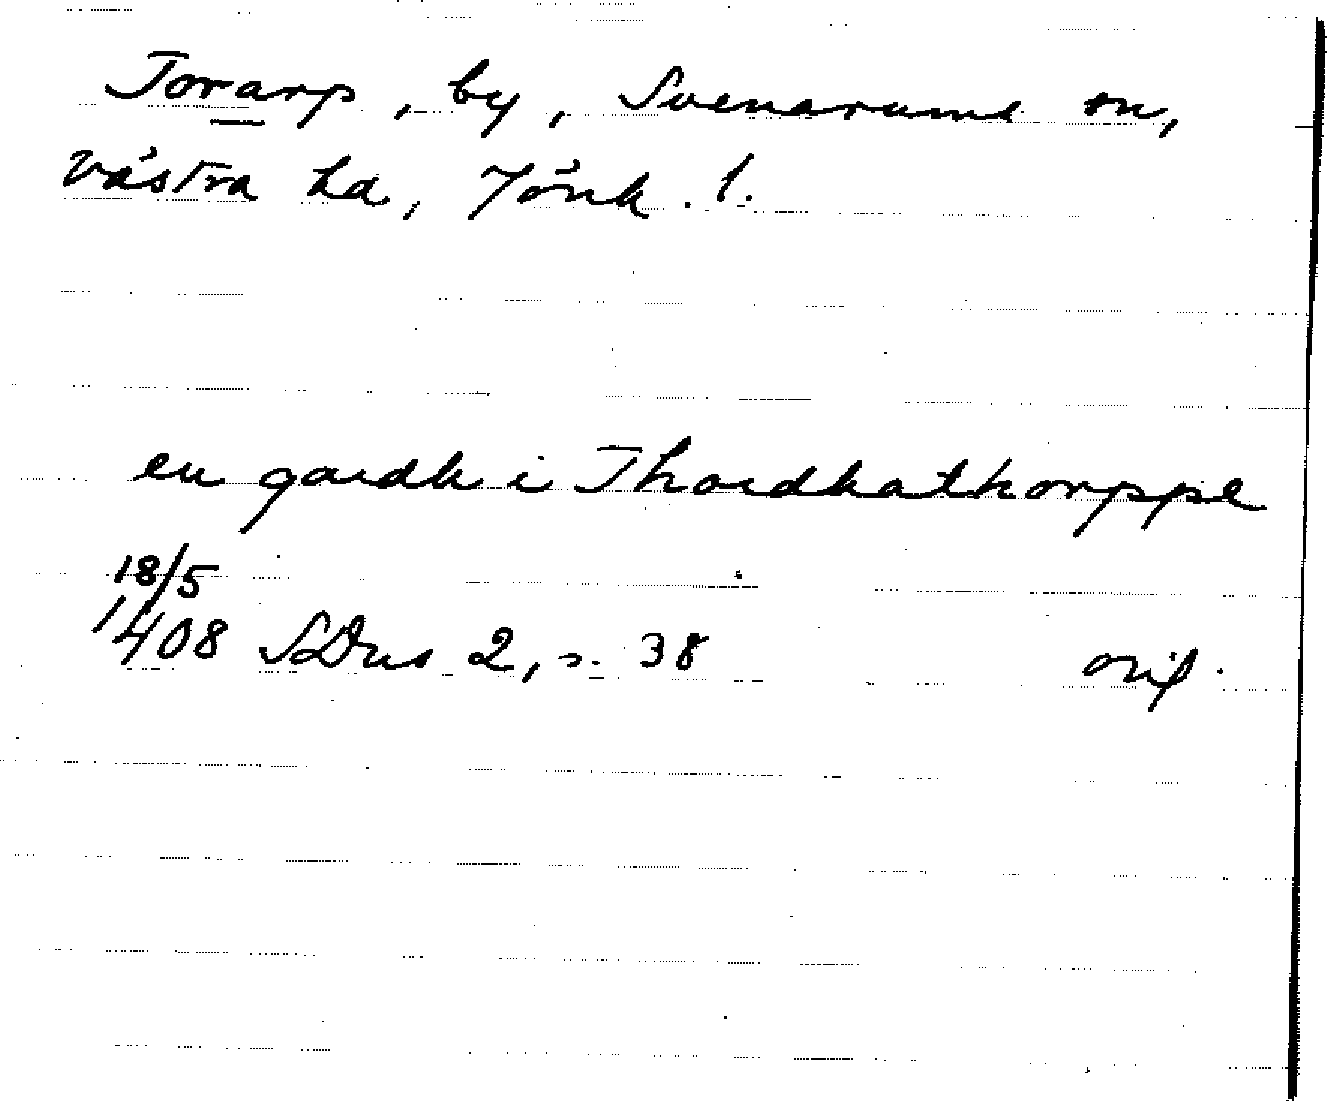 Torarp, by, Svenarums sn,
Västra hd, Jönk. l.
en gardh i Thordhathorppe
18/5
1408 SDns 2, s. 38 orig.